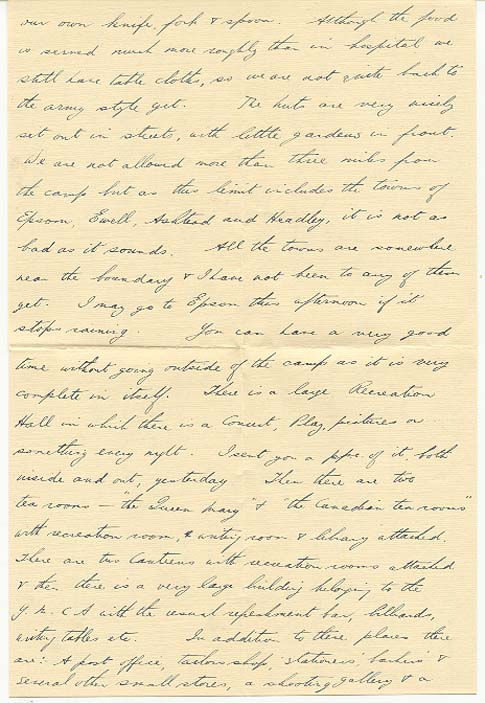 our own knife, fork & spoon. Although the food
is served much more roughly than in hospital we
still have table cloths, so we are not quite back to
the army style yet. The huts are very nicely
set out in streets, with little gardens in front.
We are not allowed more than three miles from
the camp but as this limit includes the towns of
Epsom, Ewell, Ashtead and Headley, it is not as
bad as it sounds. All the towns are somewhere
near the boundary & I have not been to any of them
yet. I may go to Epsom this afternoon if it
stops raining. You can have a very good
time without going outside of the camp as it is very
complete in itself. There is a large Recreation
Hall in which there is a Concert, Play, pictures or
something every night. I sent you a p.p.c. of it, both
inside and out, yesterday. Then there are two
tea rooms — "the Queen Mary" & "the Canadian tea rooms"
with recreation room, & writing room & library attached.
There are two Canteens with recreation rooms attached
& then there is a very large building belonging to the
Y. M. C A with the usual refreshment bar, billiards,
writing tables etc. In addition to these places there
are: A post office, tailors shop, stationers', barbers' &
several other small stores, a shooting gallery & a